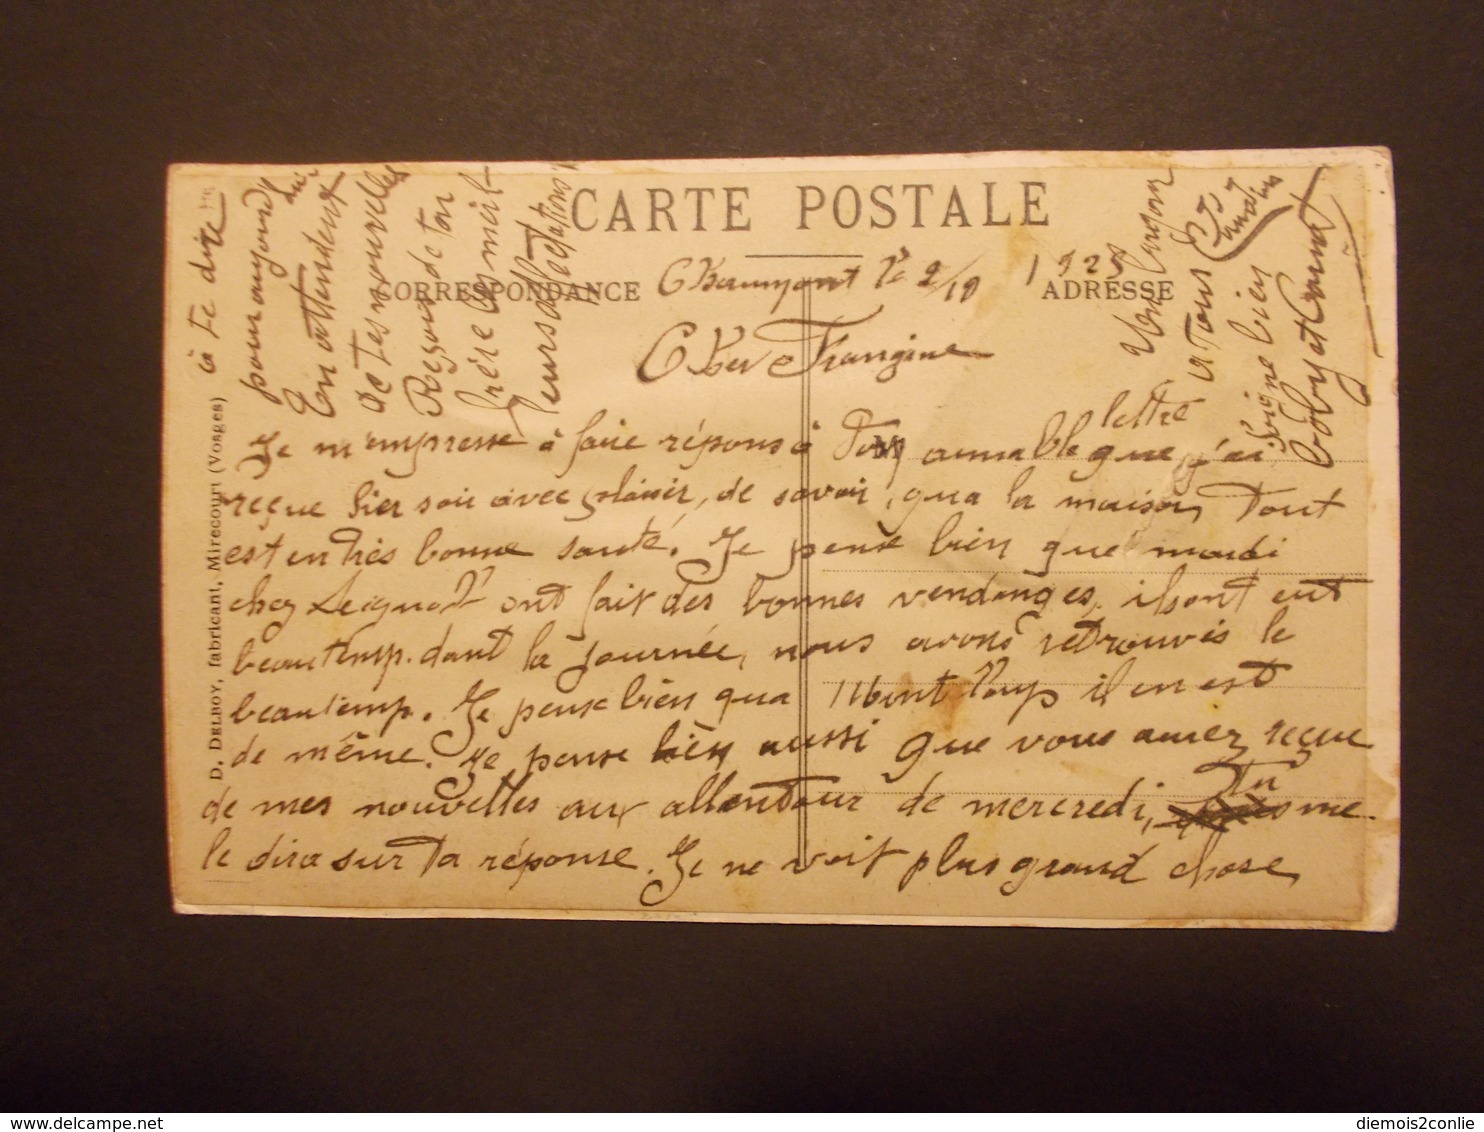 CARTE POSTALE
CORRESPONDANCE
ADRESSE
Chaumont le 2/10 1925
Cher Frangine
Je m'empresse à faire répons à Ton aimable lettre que j'ai
reçue hier soir avec plaisir, de savoir, qua la maison Tout
est en très bonne santé. Je pense bien que mardi
chez ont fait des bonnes vendanges, ils ont eut
beautemp. dant la journée, nous avons retrouvés le
beautemp. Je pense bien qua il en est
de même. Je pense bien aussi que vous auriez reçue
de mes nouvelles aux allentour de mercredi, Tu me
le dira sur ta réponse. Je ne voit plus grand chose
à te dire
pour aujourd'hui
En attendent
de tes nouvelles
Reçois de ton
frère les meil-
leurs affectations
a Tous
Soigne bien
D. DELBOY, fabricant, Mirecourt (Vosges)
diemois2conlie